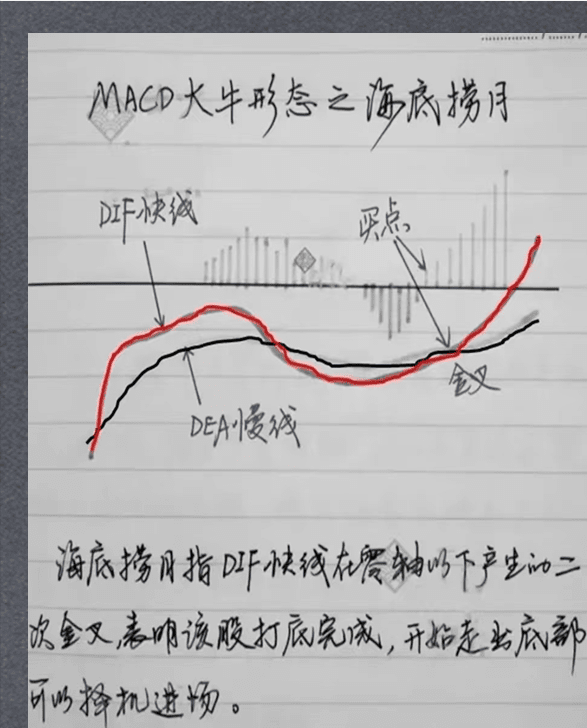 MACD大牛形态之海底捞月
DIF快线
买点
金叉
DEA慢线
海底捞月指DIF快线在零轴以下产生的二
次金叉,表明该股打底完成,开始走出底部
可以择机进场。